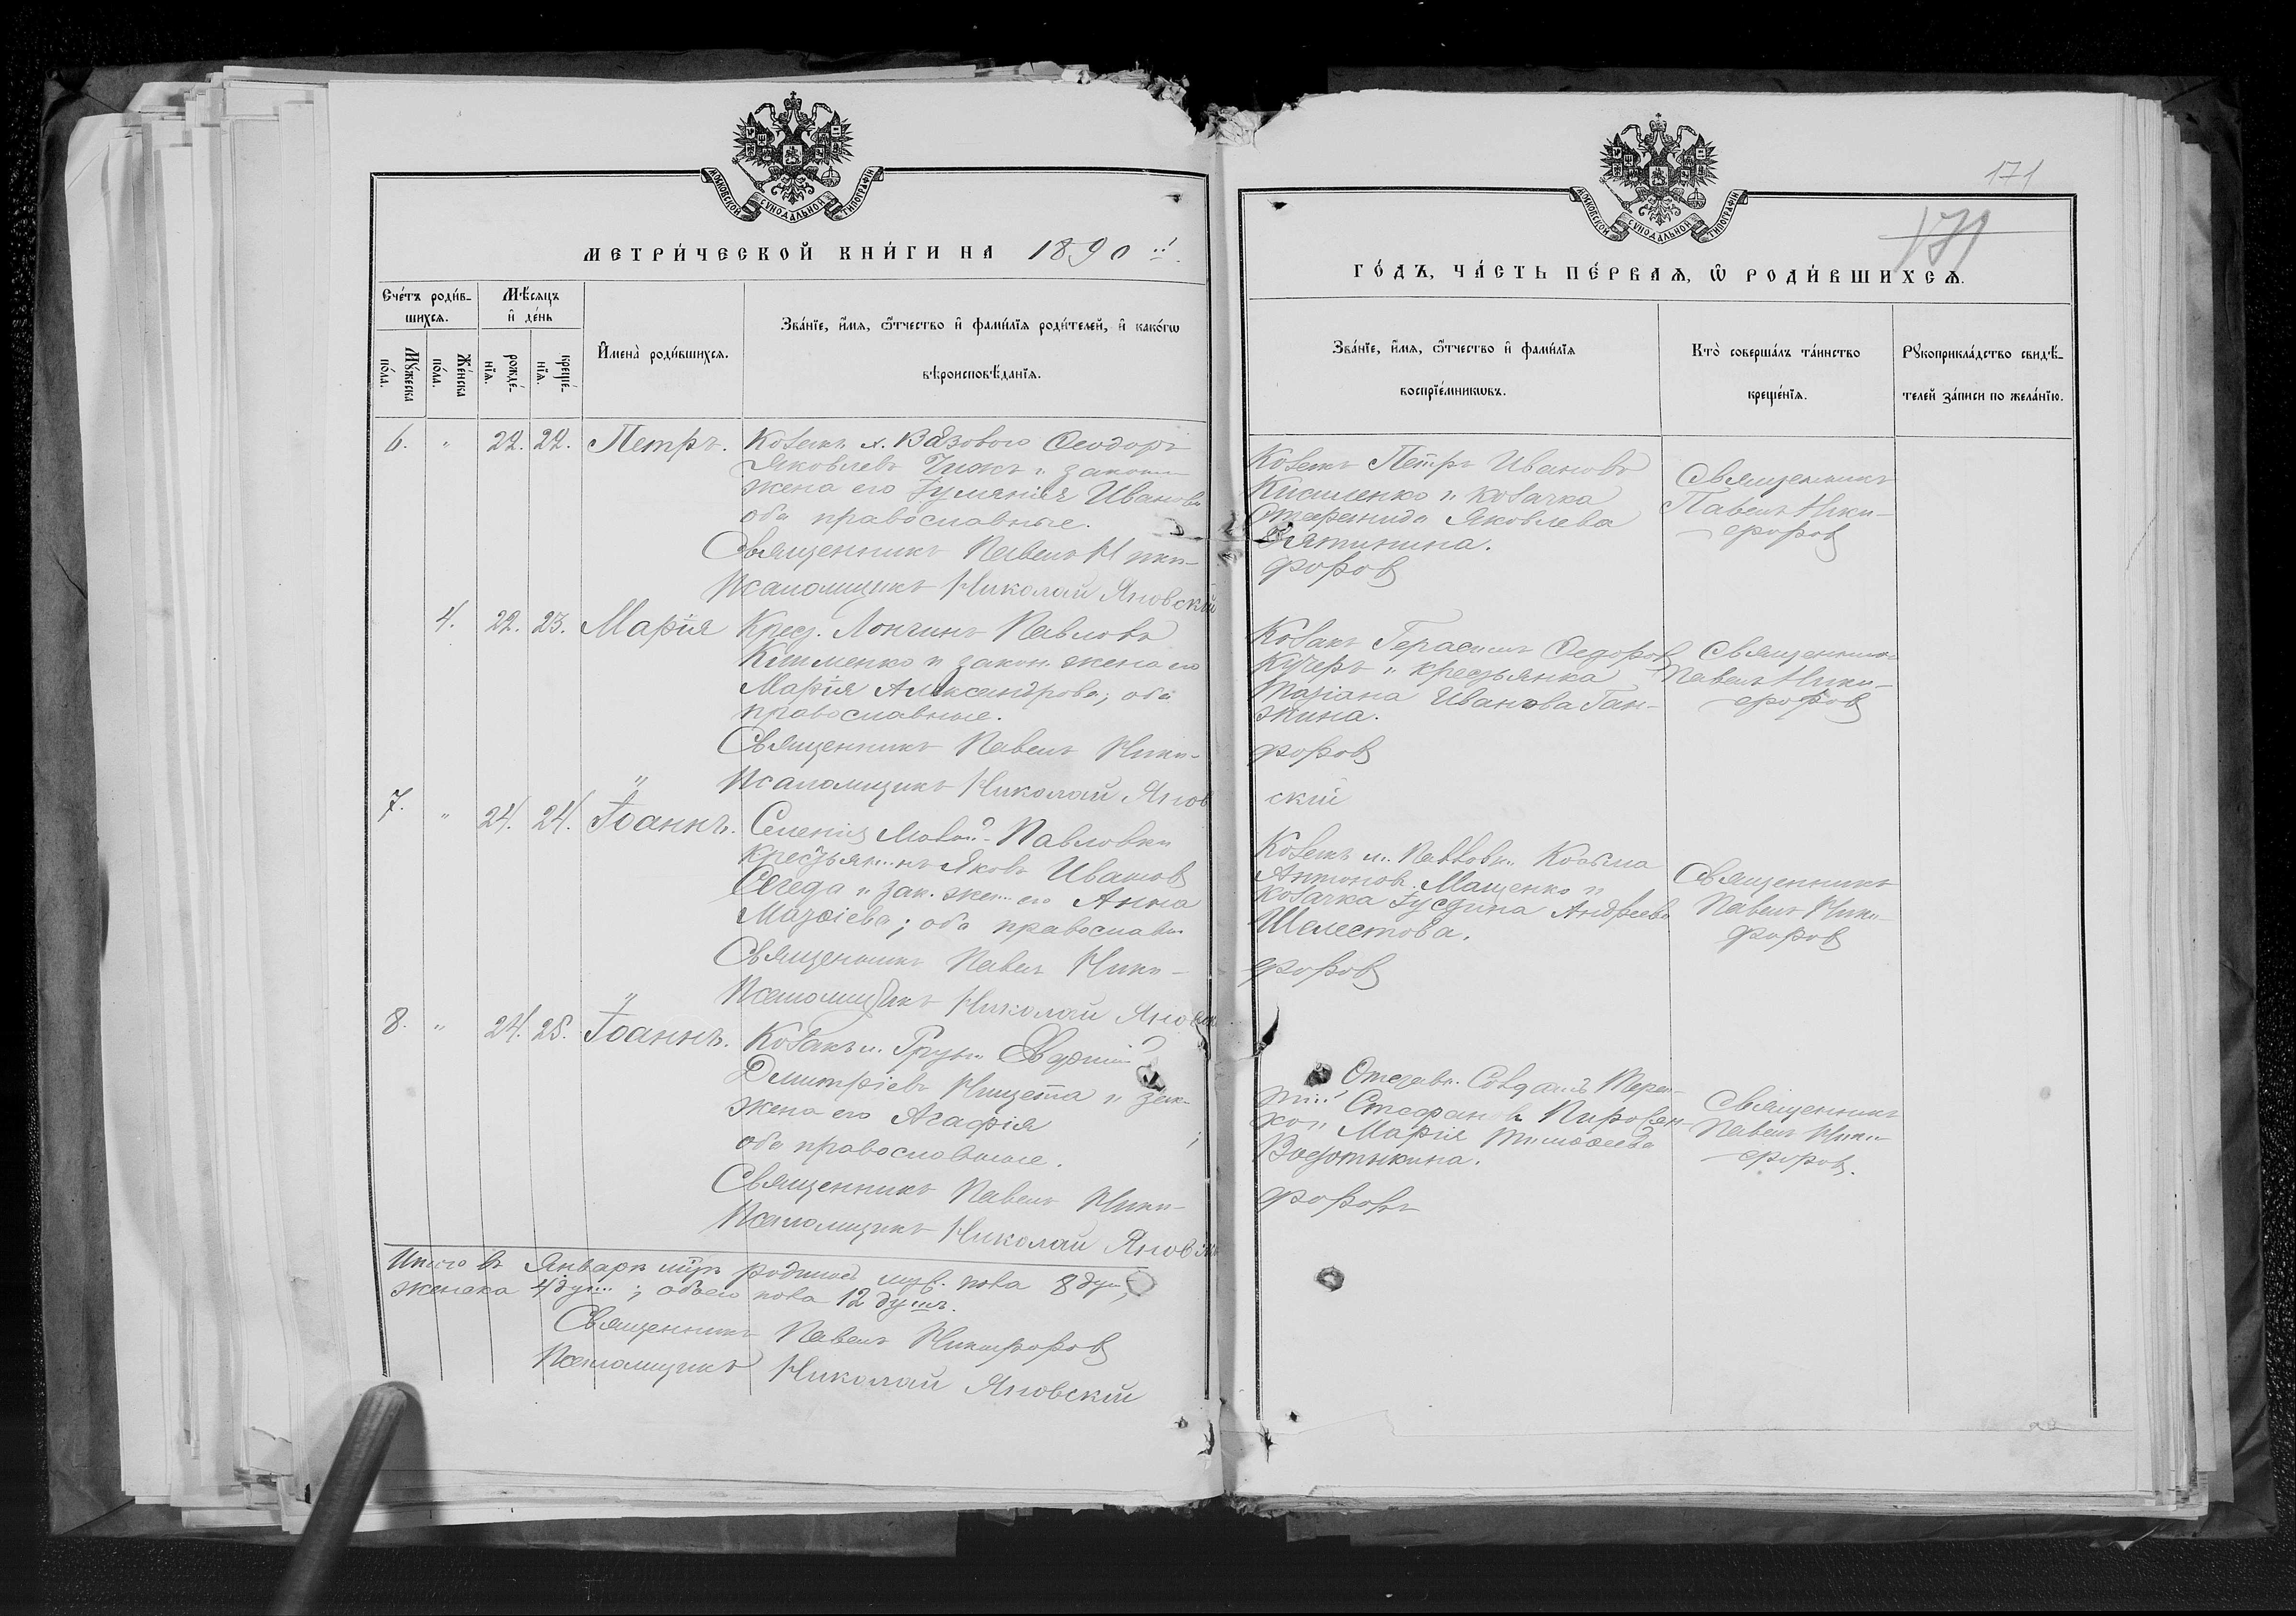 МОСКОВСКОЙ СѴНОДАЛЬНОЙ ТИПОГРАФІИ
МЕТРИ́ЧЕСКОЙ КНИ́ГИ НА 1890 й
Сче́тъ роди́в-
шихсѧ.
Мѣ́сѧцъ
и҆ де́нь
И҆мена̀ роди́вшихсѧ.
Зва́нїе, и҆́мѧ, ѻ҆́тчество и҆ фами́лїѧ роди́телей, и҆ како́гѡ
вѣроисповѣ́данїѧ.
Мꙋ́жеска
по́ла.
Же́нска
по́ла.
рожде́-
нїѧ.
креще́-
нїѧ.
6. " 22. 22. Петръ. Козакъ х. Вязового Ѳеодоръ
Яковлевъ Чижъ и законн
жена его Іуліанія Иванова
оба православные.
Священникъ Павелъ Ники-
Псаломщикъ Николай Яновскій
4. 22. 23. Марія Крест. Лонгинъ Павловъ
Клименко и закон. жена его
Марія Александрова; оба
православные.
Священникъ Павелъ Ники-
Псаломщикъ Николай Янов
7. " 24. 24. Іоаннъ. Селенія Павловки
крестьянинъ Яковъ Ивановъ
Середа и зак. жена его Анна
Матѳіева; оба православн
Священникъ Павелъ Ники-
Псаломщикъ Николай Яновск
8. " 24. 25. Іоаннъ. Козакъ м. Грун
Димитріевъ Нищета и зак
жена его Агафія
оба православные.
Священникъ Павелъ Ники-
Псаломщикъ Николай Яновск
Итого въ Январѣ мцѣ родилось муж. пола 8 душ,
женска 4 душ; обоего пола 12 душъ.
Священникъ Павелъ Никифоровъ
Псаломщикъ Николай Яновскій
171
171
МОСКОВСКОЙ СѴНОДАЛЬНОЙ ТИПОГРАФІИ
ГО́ДЪ, ЧА́СТЬ ПЕ́РВАѦ, Ѽ РОДИ́ВШИХСѦ.
Зва́нїе, и҆́мѧ, ѻ҆́тчество и҆ фами́лїѧ
воспрїе́мникѡвъ.
Кто̀ соверша́лъ та́инство
креще́нїѧ.
Рꙋкоприкла́дство свидѣ́-
телей за́писи по жела́нїю.
Козакъ Петръ Ивановъ
Кисиленко и козачка
Яковлева
форовъ
Священникъ
Павелъ Ники-
форовъ
Козакъ Герасимъ Ѳедоровъ
Кучеръ и крестьянка
Татіана Иванова Ган-
жина.
форовъ
скій
Священникъ
Павелъ Ники-
форовъ
Козакъ Косьма
Антоновъ Мащенко и
козачка Іустина Андреева
Шелестова.
форовъ
Священникъ
Павелъ Ники-
форовъ
Отставн. Солдатъ Терен-
тій Стефановъ
Марія Тимоѳеева
форовъ
Священникъ
Павелъ Ники-
форовъ.